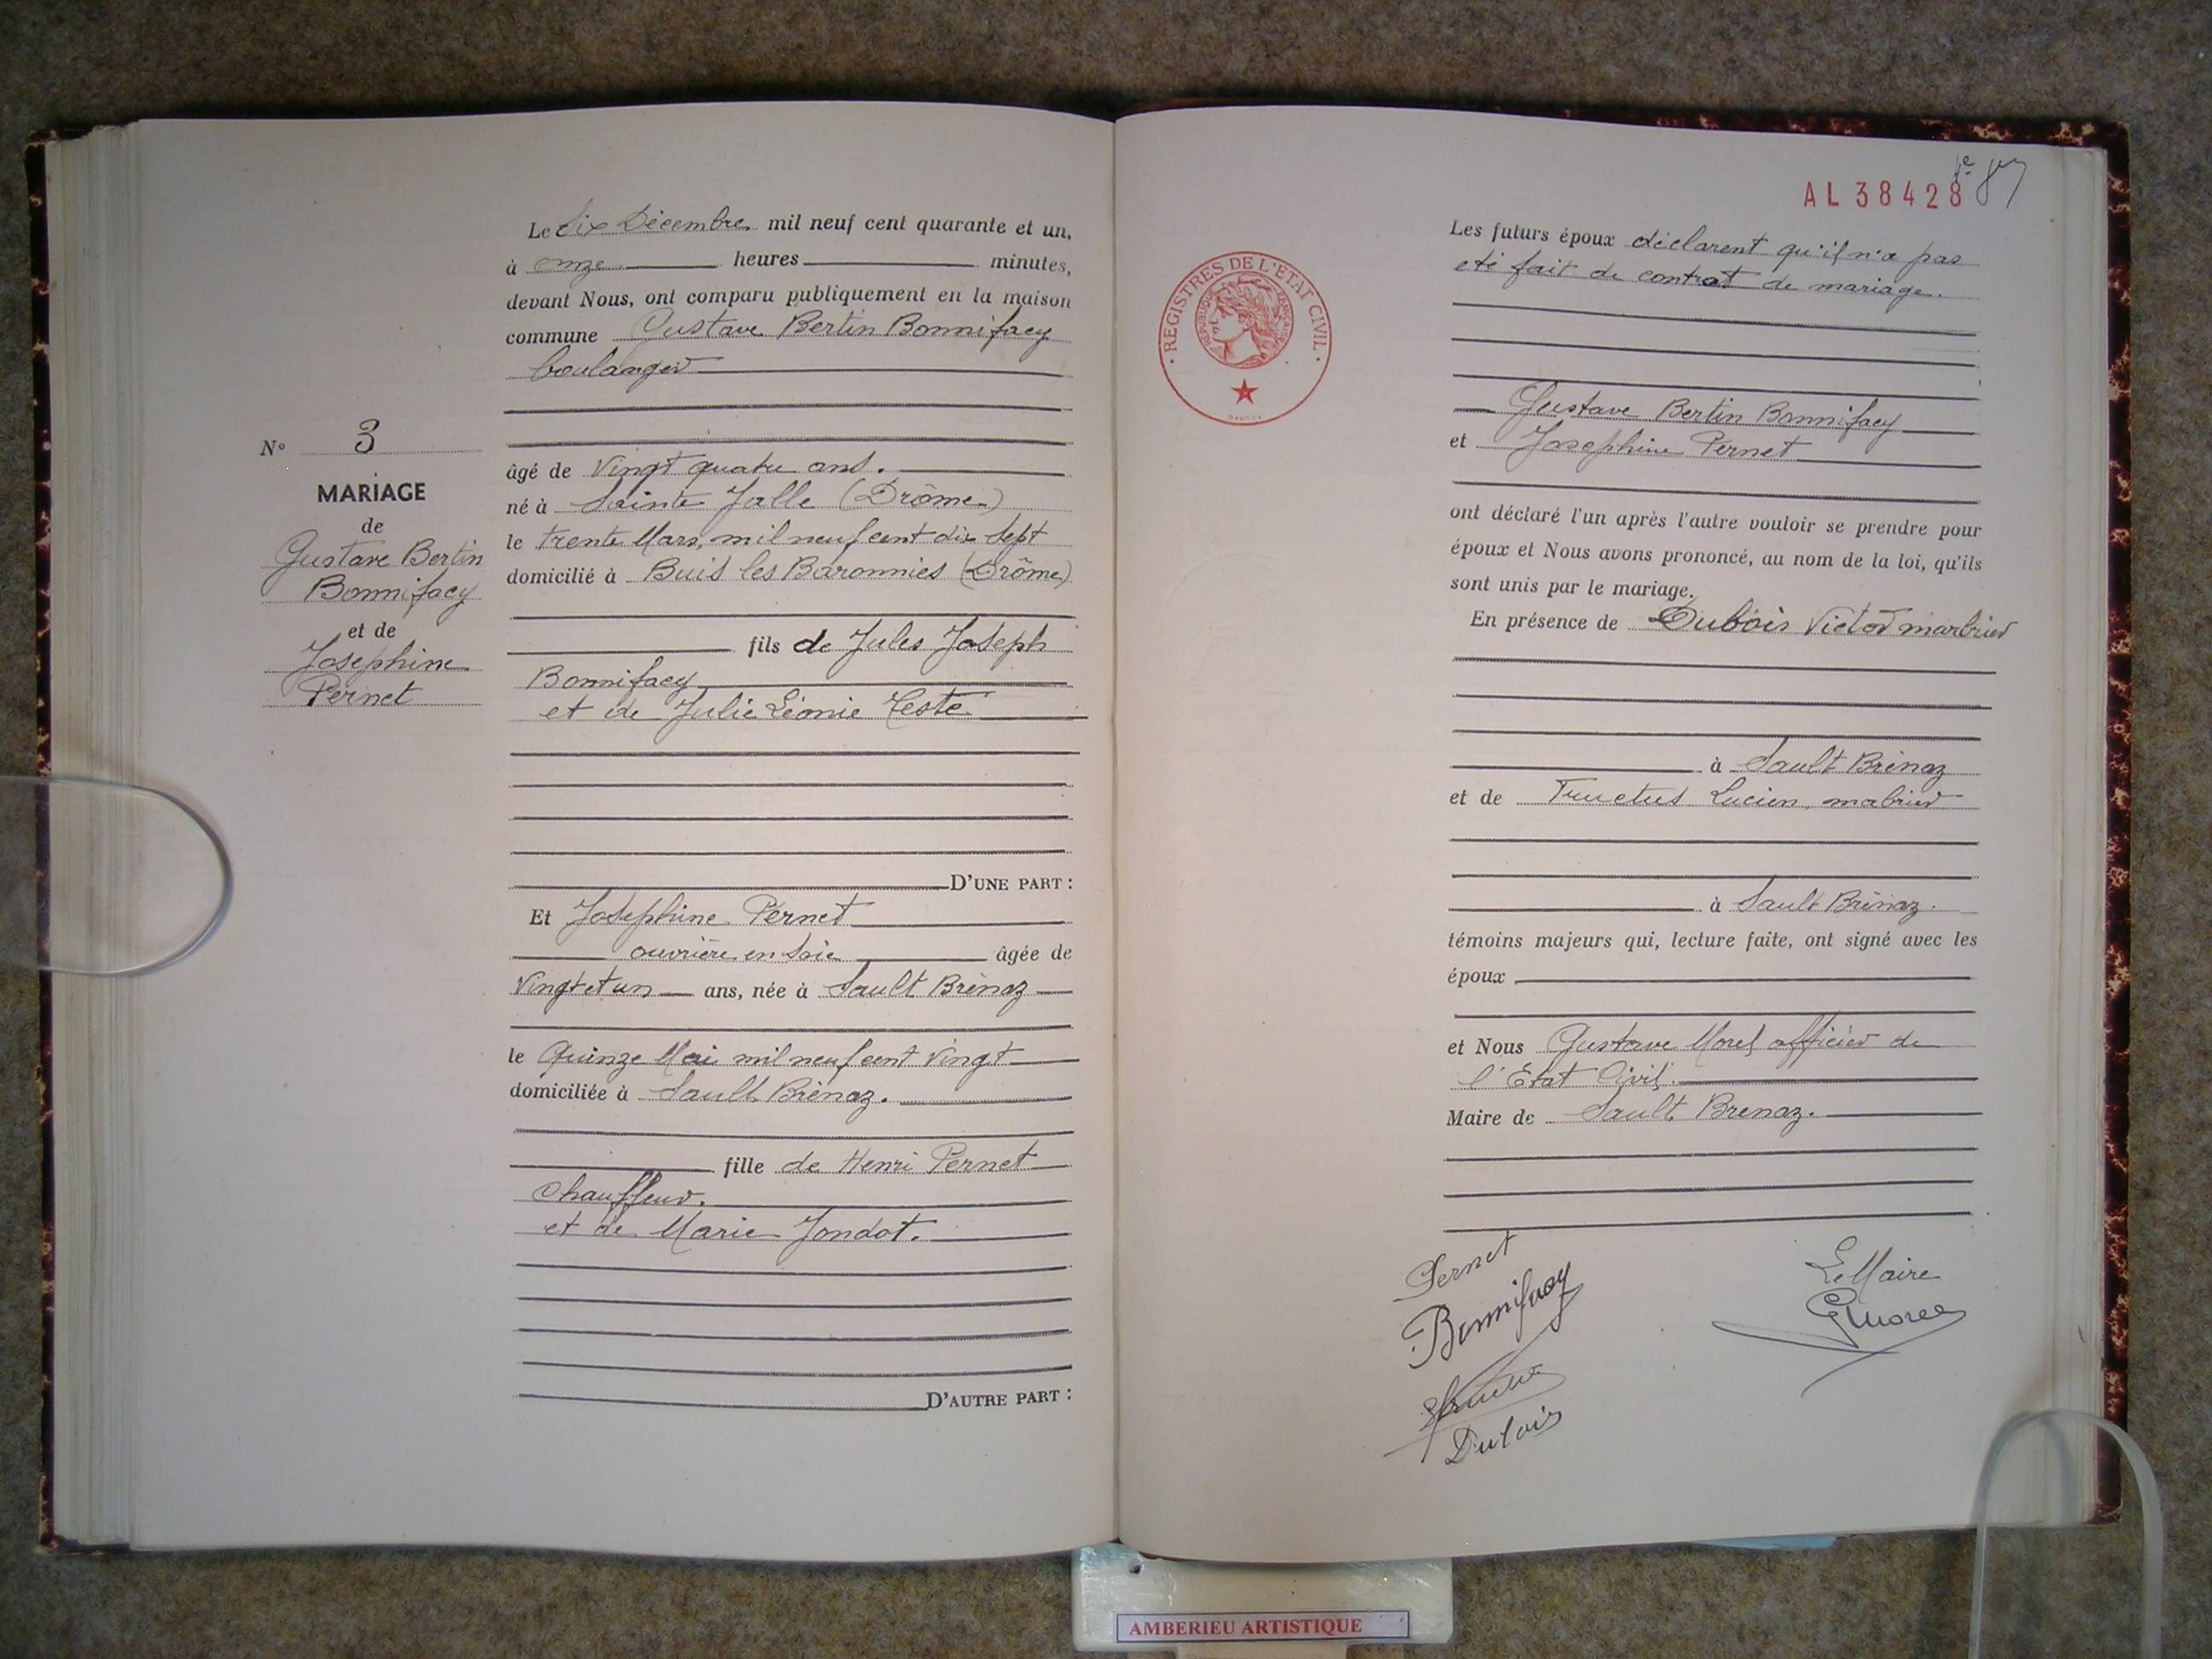 Le dix Décembre mil neuf cent quarante et un,
à onze heures minutes,
devant Nous, ont comparu publiquement en la maison
commune Gustave Bertin Bonnifacy
boulanger
N° 3
MARIAGE
de
Gustave Bertin
Bonnifacy
et de
Josephine
Pernet
âgé de Vingt quatre ans.
né à Sainte Jalle (Drôme)
le trente Mars, mil neuf cent dix sept
domicilié à Buis les Baronnies (Drôme)
fils de Jules Joseph
Bonnifacy
et de Julie Léonie Teste
D'UNE PART :
Et Josephine Pernet
ouvrière en soie âgée de
Vingt et un ans, née à Sault Brénaz
le Quinze Mai mil neuf cent Vingt
domiciliée à Sault Brénaz.
fille de Henri Pernet
Chauffeur.
et de Marie Jondot.
D'AUTRE PART :
AL 38428
87
REGISTRES DE L'ETAT CIVIL
REPUBLIQUE FRANÇAISE
Les futurs époux déclarent qu'il n'a pas
eté fait de contrat de mariage.
Gustave Bertin Bonnifacy
et Josephine Pernet
ont déclaré l'un après l'autre vouloir se prendre pour
époux et Nous avons prononcé, au nom de la loi, qu'ils
sont unis par le mariage.
En présence de Dubois Victor marbrier
à Sault Brénaz
et de Tructus Lucien, mabrier
à Sault Brénaz.
témoins majeurs qui, lecture faite, ont signé avec les
époux
et Nous Gustave Morel officier de
l'Etat Civil.
Maire de Sault Brenaz.
Pernet
Bonnifacy
Dubois
Le Maire
GMorel
AMBERIEU ARTISTIQUE